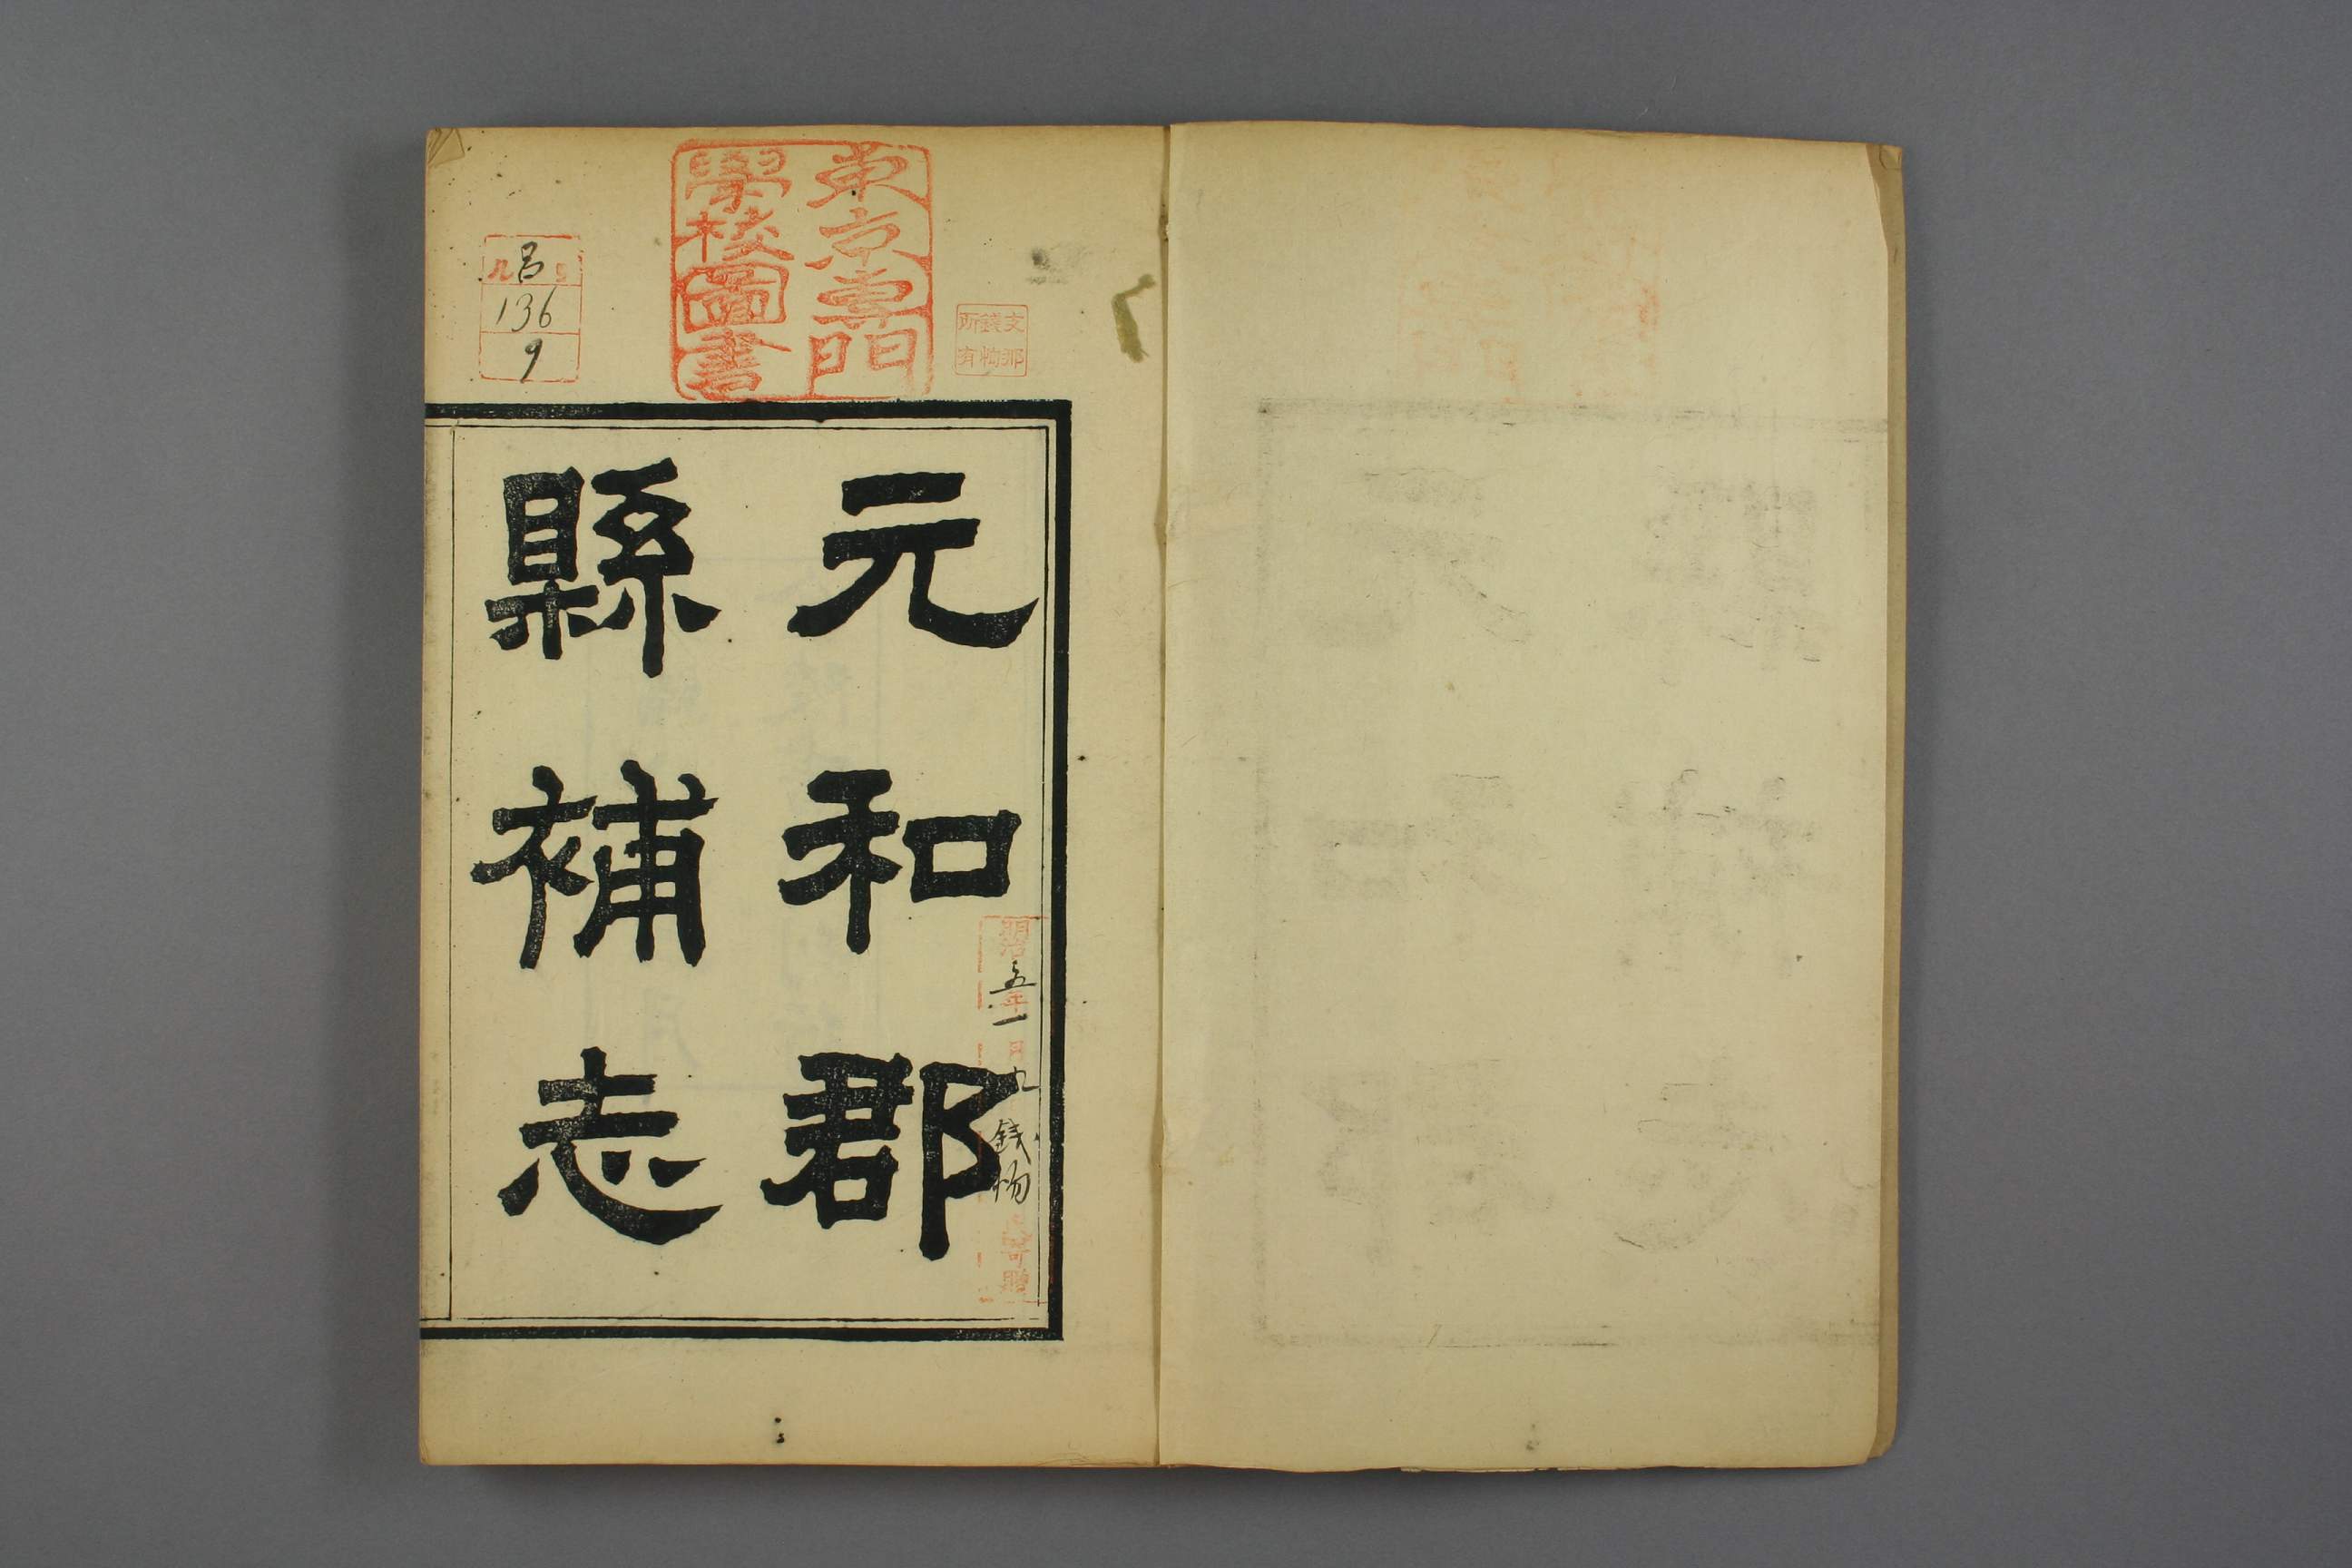 元和郡
縣補志
東京專門
學校圖書
支那
錢恂
所有
呂
136
9
明治 五年一月九 錢恂 氏寄贈